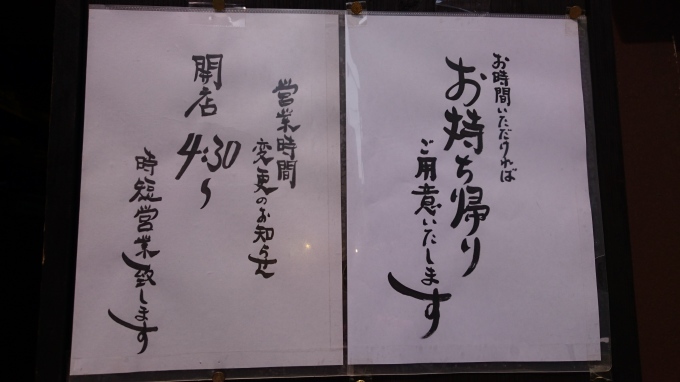 お時間いただければ
お持ち帰り
ご用意いたします
営業時間
変更のお知らせ
開店
4:30～
時短営業致します